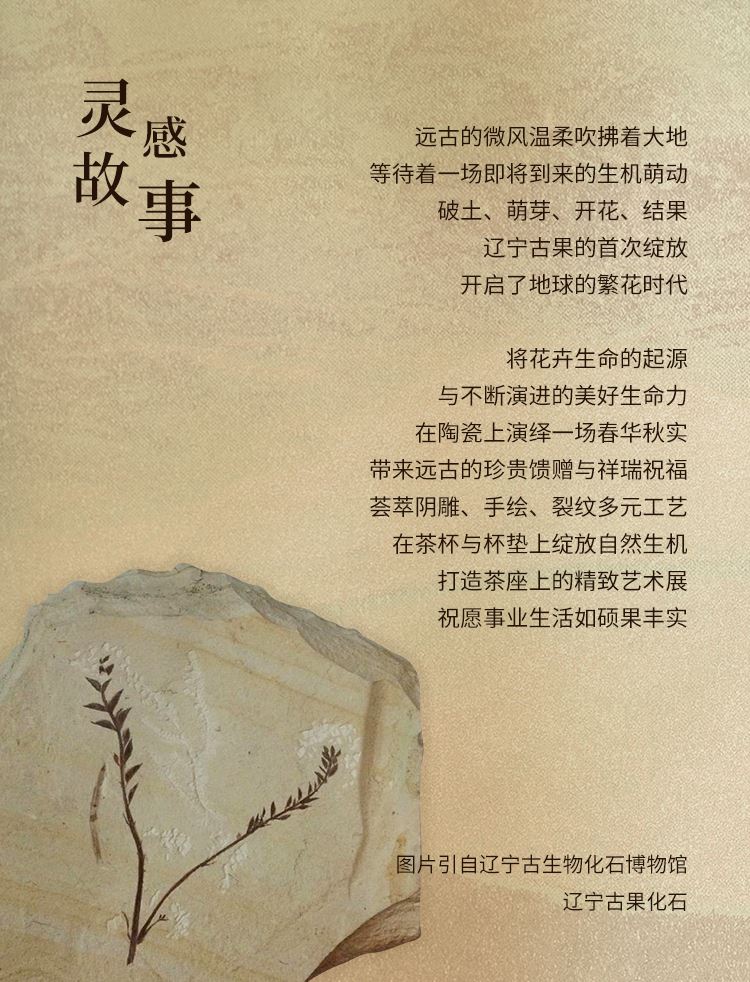 灵感故事
远古的微风温柔吹拂着大地
等待着一场即将到来的生机萌动
破土、萌芽、开花、结果
辽宁古果的首次绽放
开启了地球的繁花时代
将花卉生命的起源
与不断演进的美好生命力
在陶瓷上演绎一场春华秋实
带来远古的珍贵馈赠与祥瑞祝福
荟萃阴雕、手绘、裂纹多元工艺
在茶杯与杯垫上绽放自然生机
打造茶座上的精致艺术展
祝愿事业生活如硕果丰实
图片引自辽宁古生物化石博物馆
辽宁古果化石